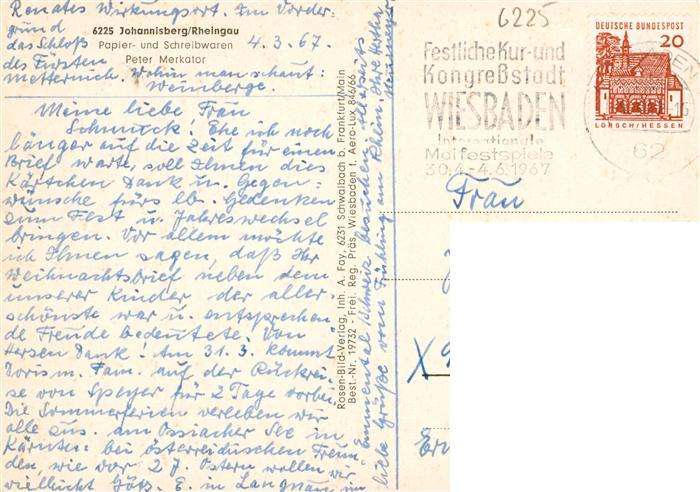 Renates Wirkungsort. Im Vorder=
grund
das Schloß
des Fürsten
Metternich. Wohin man schaut:
Weinberge.
6225 Johannisberg/Rheingau
Papier- und Schreibwaren
Peter Merkator
4.3.67.
Meine liebe Frau
Schmuck! Ehe ich noch
länger auf die Zeit für einen
Brief warte, soll Ihnen dies
Kärtchen Dank u. Gegen=
wünsche fürs lb. Gedenken
zum Fest u. Jahreswechsel
bringen. Vor allem möchte
ich Ihnen sagen, daß Ihr
Weihnachtsbrief neben dem
unserer Kinder der aller=
schönste war u. entsprechen
de Freude bedeutete. Von
Herzen Dank! Am 31.3. kommt
Doris m. Fam. auf der Rückrei=
se von Speyer für 2 Tage vorbei.
Die Sommerferien verleben wir
alle zus. am Ossiacher See in
Kärnten bei österreichischen Freun
den, wie vor 2 J. Ostern wollen wir
vielleicht Götz. E. in Langnau im
Emmental/Schweiz besuchen. Allerseits
liebe Grüße vom Frühling am Rhein. Ihre
Rosen-Bild-Verlag, Inh. A. Fay, 6231 Schwalbach b. Frankfurt/Main
Best.-Nr. 19732 - Frei. Reg. Präs. Wiesbaden t. Aero-Lux 846/66
6225
Festliche Kur- und
Kongreßstadt
WIESBADEN
Internationale
Maifestspiele
30.4.-4.6.1967
DEUTSCHE BUNDESPOST
20
LORSCH/HESSEN
62
Frau